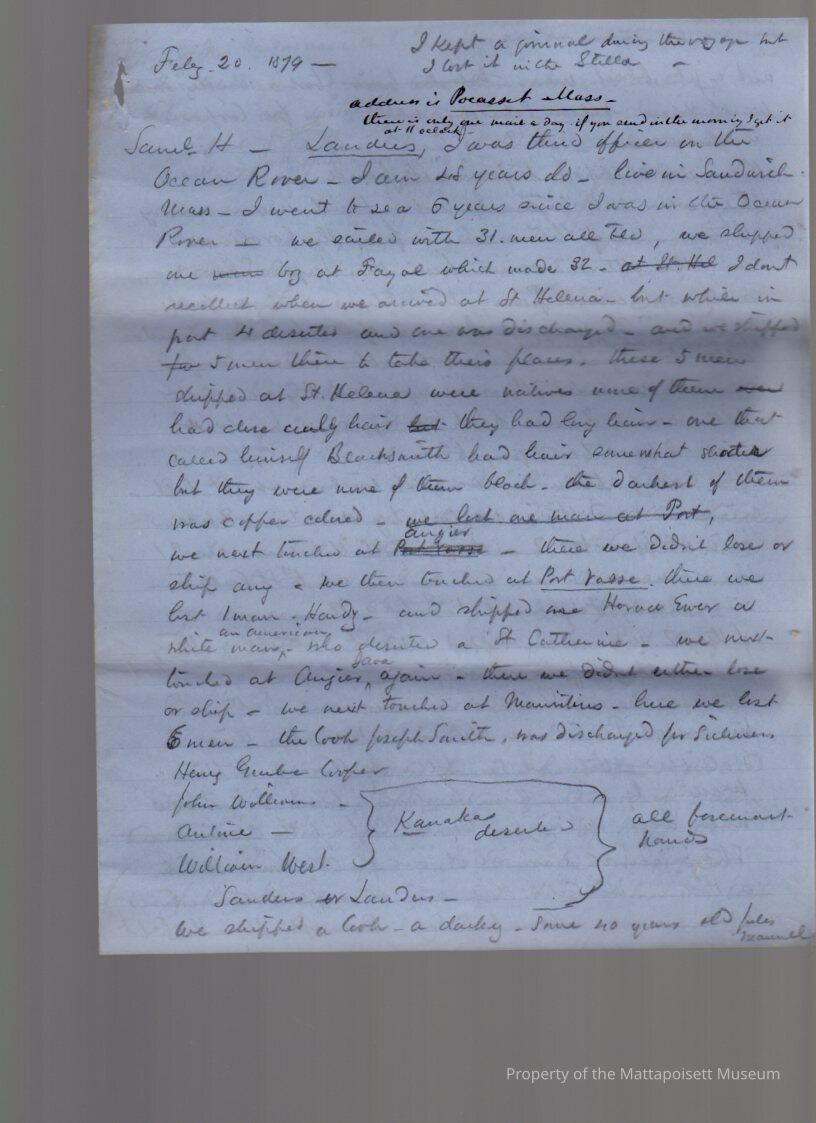 I kept a journal during the voyage but
Feby. 20. 1879 — I lost it in the Stella –
address is Pocasset Mass –
there is only one mail a day. if you send in the morning I get it
at 11 oclock –
Saml. H – Landers, I was third officer on the
Ocean Rover – I am 48 years old – live in Sandwich
Mass – I went to sea 6 years since I was in the Ocean
Rover – we sailed with 31. men all told, we shipped
one boy at Fayal which made 32 – at St. Hel I dont
recollect when we arrived at St Helena – but while in
port 4 deserted and one was discharged – and we shipped
for 5 men there to take theirs places. these 5 men
shipped at St. Helena were natives none of them
had close curly hair but they had long hair – one that
called himself Blacksmith had hair somewhat shorter
but they were none of them black – the darkest of them
was copper colored – we lost one man at Port,
Angier
we next touched at Port Vasse – there we didn't lose or
ship any – we then touched at Port Vasse. there we
lost 1 man – Hardy – and shipped one Horace Ewer a
an american
white man, – who deserted a St Catherine – we next
Java
touched at Angier, again – there we didnt either lose
or ship – we next touched at Mauritius – here we lost
6 men – the Cook Joseph Smith, was discharged for Sickness
Henry Cooper
John Williams –
Antone —
William West.
Kanakas
deserted
all foremast
hands
Sanders or Landers –
We shipped a Cook – a darkey – some 40 years old Jules